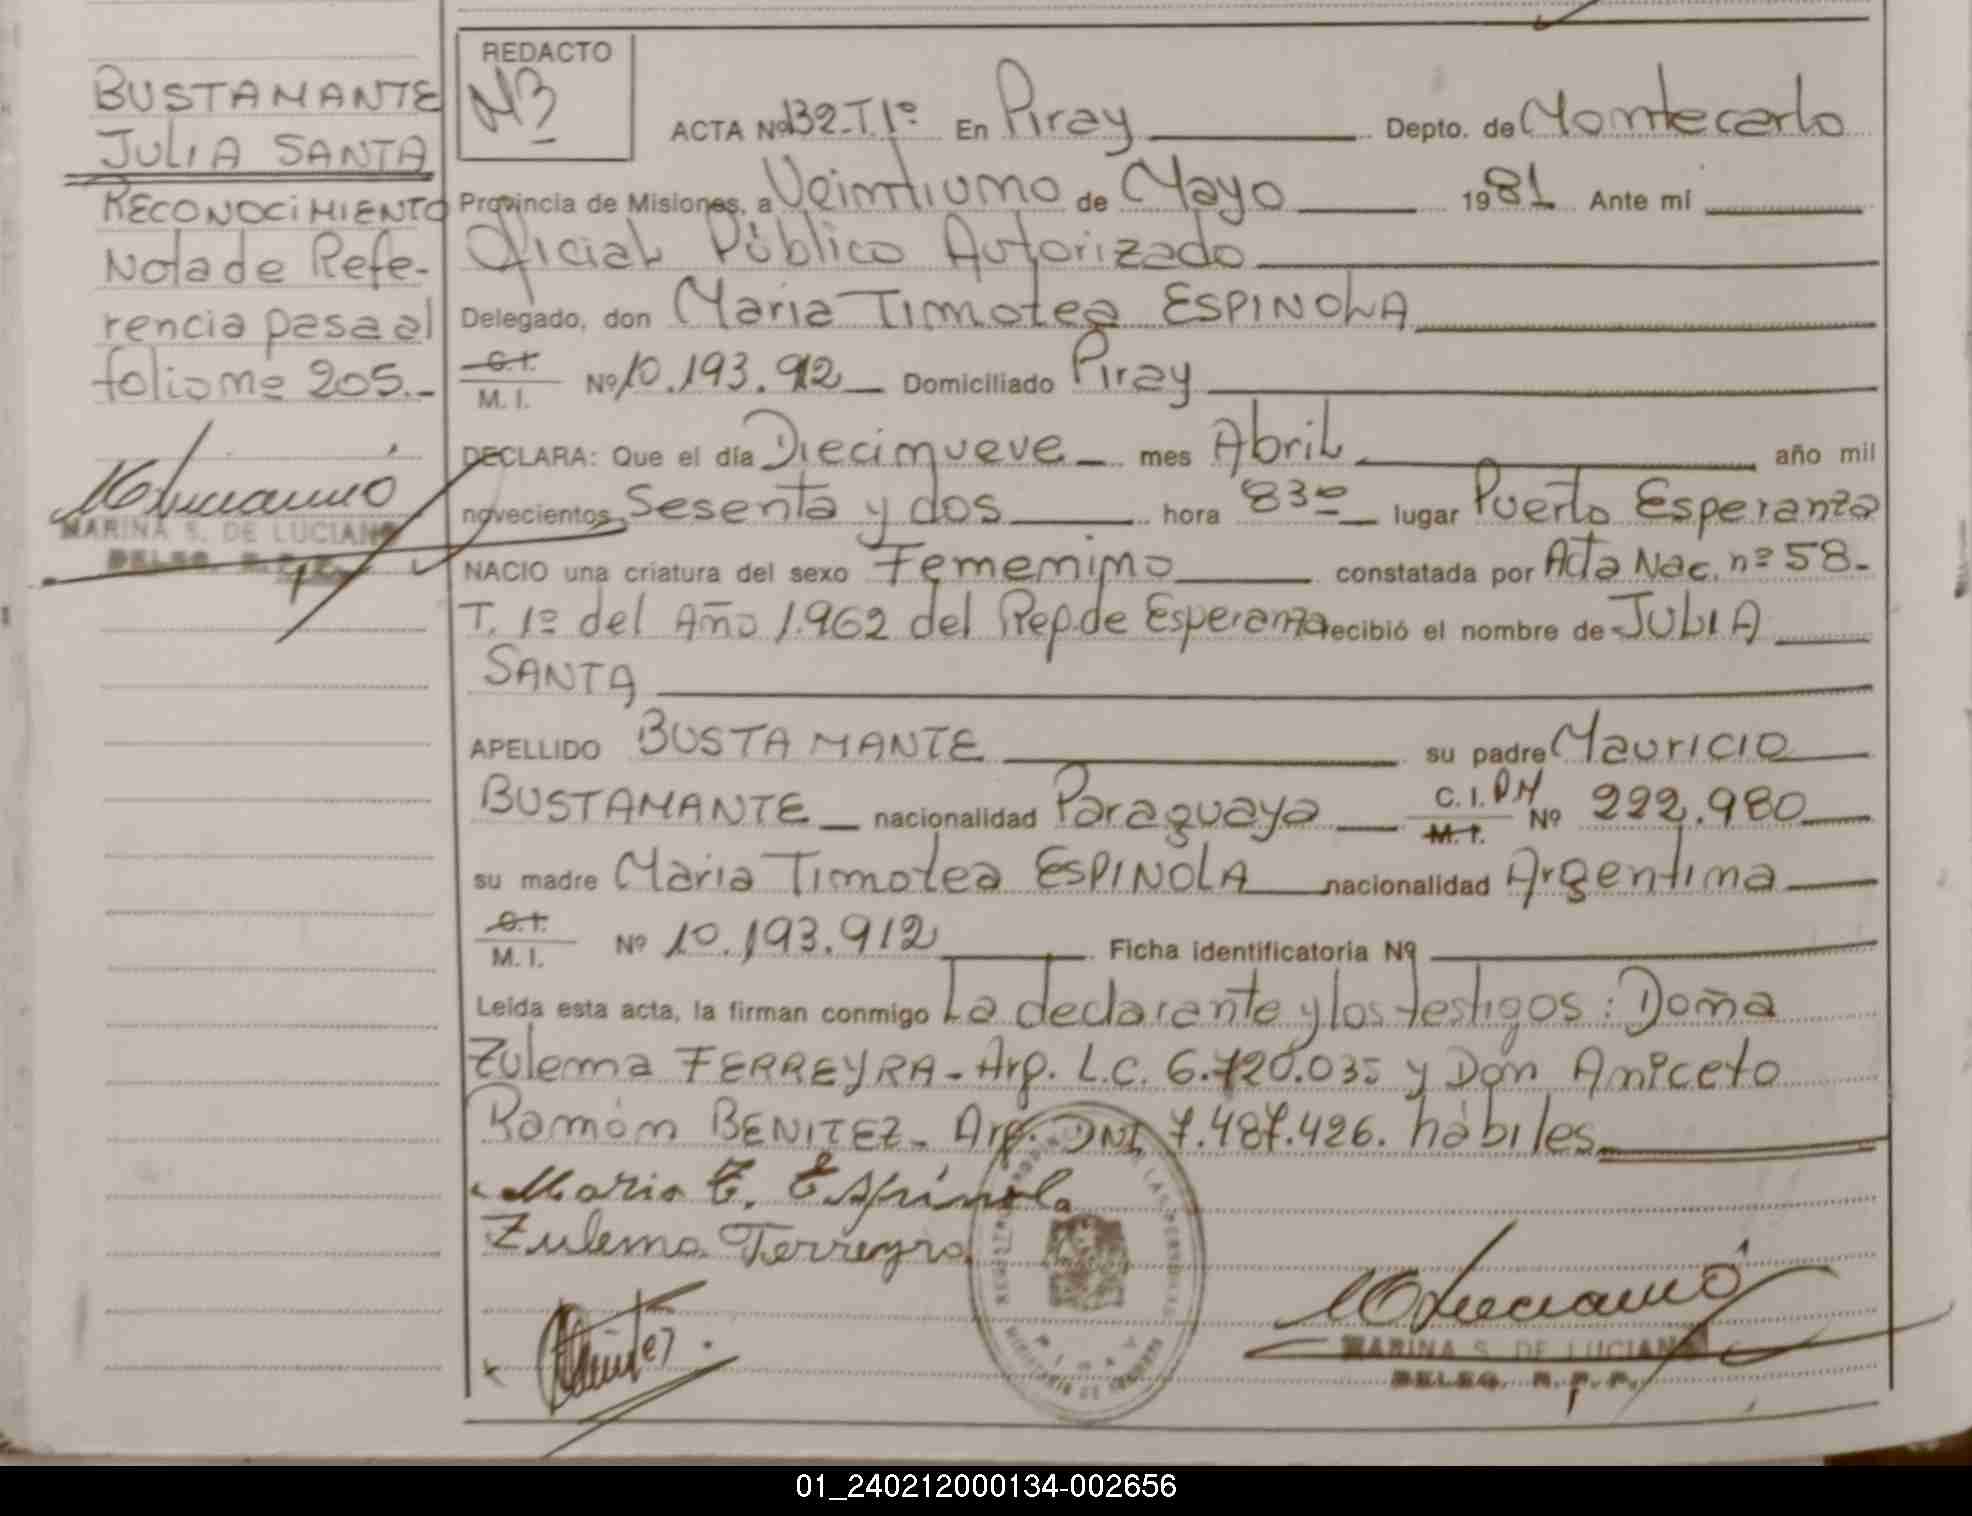 BUSTAMANTE
JULIA SANTA
RECONOCIMIENTO
Nota de Refe-
rencia pasa al
folio nº 205.-
MARINA S. DE LUCIANO
DELEG. R.P.P.
REDACTO
ACTA Nº 132-T.1º En Piray Depto. de Montecarlo
Provincia de Misiones, a Veintiuno de Mayo 1981 Ante mí
Oficial Público Autorizado
Delegado, don Maria Timotea ESPINOLA
C.I.
M. I. Nº 10.193.912 Domiciliado Piray
DECLARA: Que el día Diecinueve mes Abril año mil
novecientos Sesenta y dos hora 8³⁰ lugar Puerto Esperanza
NACIO una criatura del sexo Femenino constatada por Acta Nac. nº 58-
T. 1º del Año 1.962 del Rep. de Esperanza recibió el nombre de JULIA
SANTA
APELLIDO BUSTAMANTE su padre Mauricio
BUSTAMANTE nacionalidad Paraguaya C.I. M.I. Nº 222.980
su madre Maria Timotea ESPINOLA nacionalidad Argentina
C.I.
M. I. Nº 10.193.912 Ficha identificatoria Nº
Leída esta acta, la firman conmigo La declarante y los testigos: Doña
Zulema FERREYRA - Arg. L.C. 6.720.035 y Don Aniceto
Ramón BENITEZ - Arg. DNI 7.487.426. hábiles
Maria T. Espinola
Zulema Ferreyra
MARINA S. DE LUCIANO
DELEG. R.P.P.
01_240212000134-002656